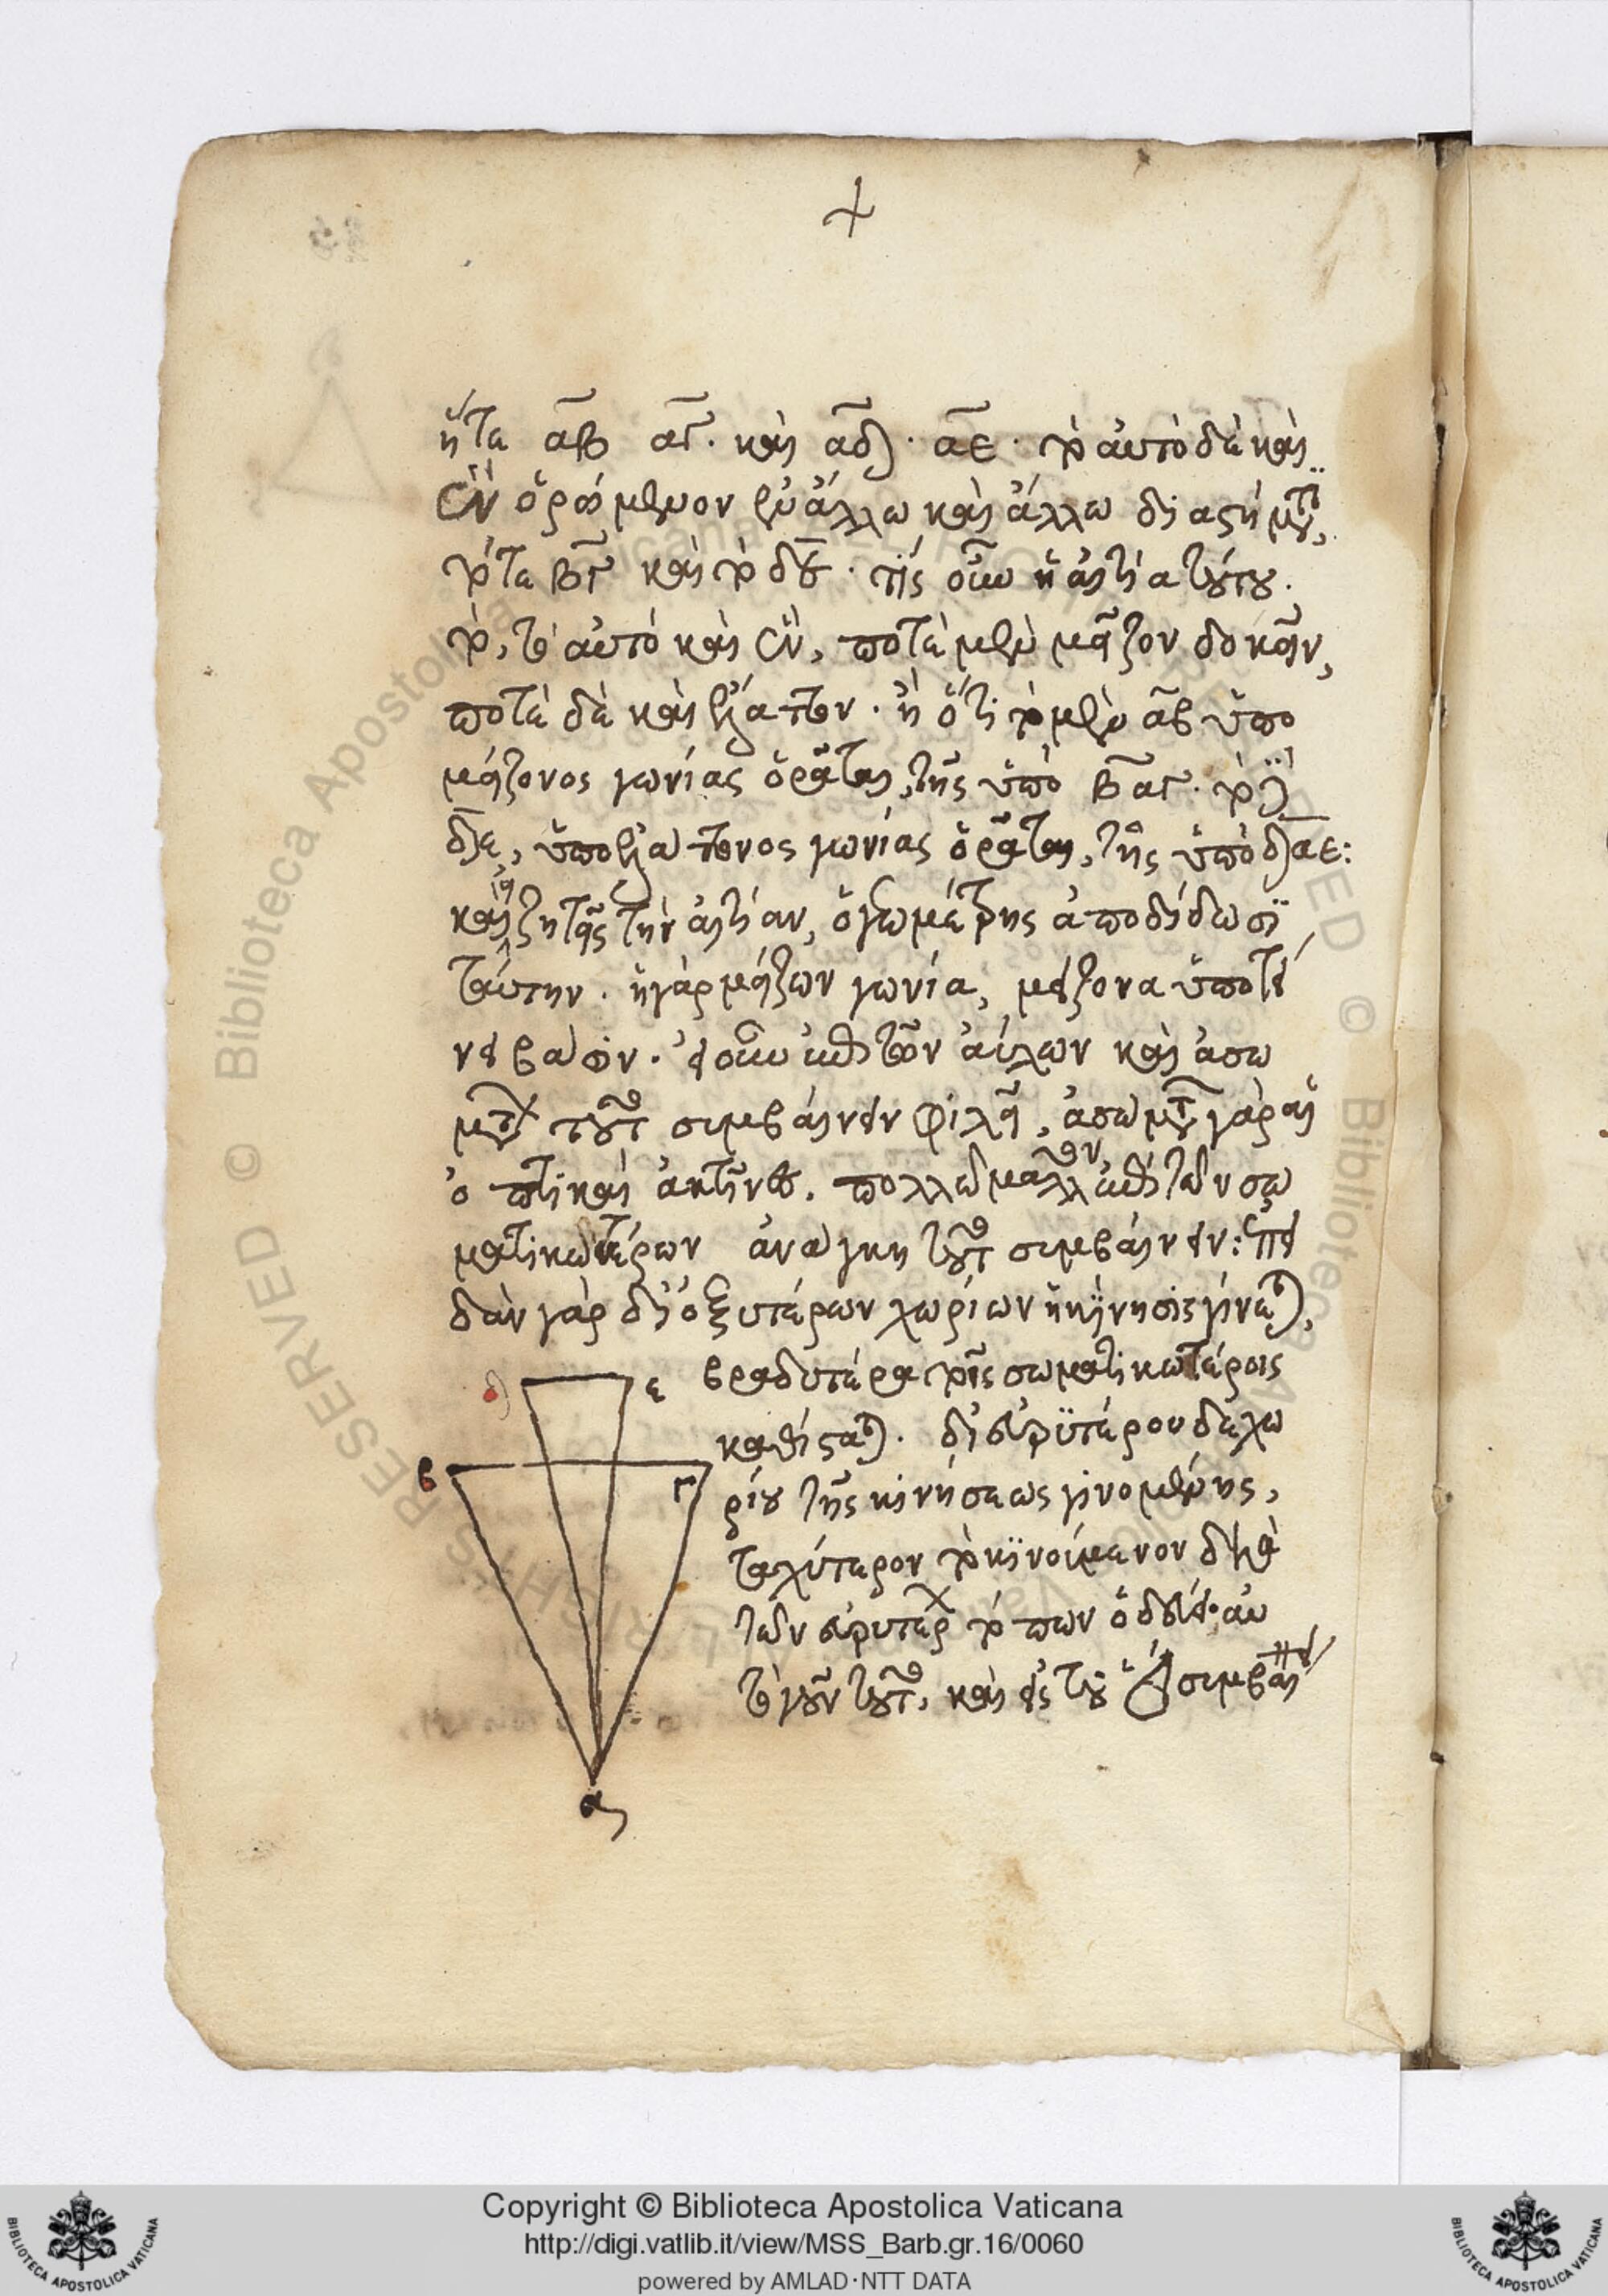 ἥτε αβ αγ. καὶ αδ. αε. τὸ αὐτὸ δὲ καὶ
ἓν ὁρώμενον ἐν ἄλλω καὶ ἄλλω διαστήματι,
τότε βγ καὶ τὸ δε. τίς οὖν ἡ αἰτία τούτου.
τὸ, τὸ αὐτὸ καὶ ἓν, ποτὲ μὲν μεῖζον δοκεῖν,
ποτὲ δὲ καὶ ἔλαττον. ἢ ὅτι τὸ μὲν αβ ὑπὸ
μείζονος γωνίας ὁρᾶται, τῆς ὑπὸ βαγ. τὸ δὲ
δε, ὑπὸ ἐλάττονος γωνίας ὁρᾶται, τῆς ὑπὸ δαε:
καὶ ζητεῖς τὴν αἰτίαν, ὁ γεωμέτρης ἀποδίδωσι
ταύτην. ἡ γὰρ μείζων γωνία, μείζονα ὑποτεί
νει βάσιν. εἰ οὖν ἐπὶ τῶν ἀύλων καὶ ἀσω
μάτων τοῦτο συμβαίνειν φιλεῖ, ἀσώματοι γὰρ αἱ
ὀπτικαὶ ἀκτῖνες. πολλῶ μᾶλλον ἐπὶ τῶν σω
ματικωτέρων ἀνάγκη τοῦτο συμβαίνειν: ἐπει
δὰν γὰρ δι' ὀξυτέρων χωρίων ἡ κίνησις γίνεται,
βραδυτέρα τοῖς σωματικωτέροις
καθίσταται. δι' εὐρυτέρου δὲ χω
ρίου τῆς κινήσεως γινομένης,
ταχύτερον τὸ κινούμενον διὰ
τῶν εὐρυτέρων τόπων ὁδεύει. αὐ
τὸ γοῦν τοῦτο, καὶ εἰς τοῦ συμβαίνει
δ ε
β γ
α
Copyright © Biblioteca Apostolica Vaticana
http://digi.vatlib.it/view/MSS_Barb.gr.16/0060
powered by AMLAD·NTT DATA